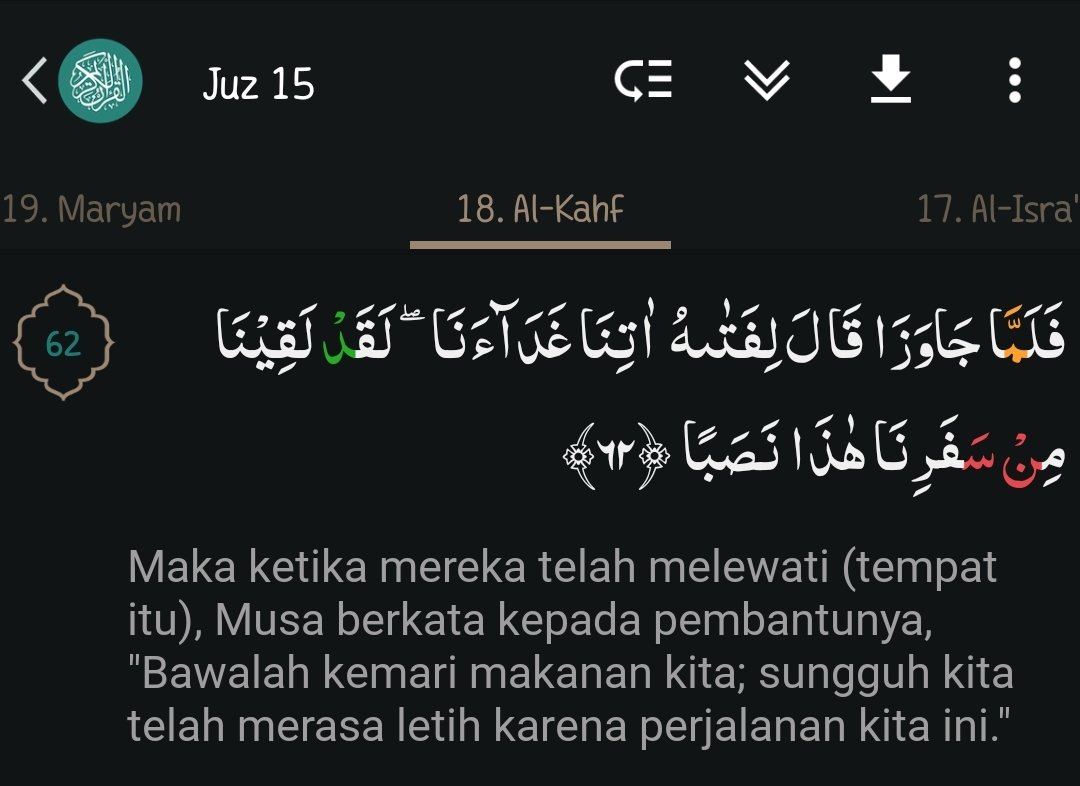 Juz 15
19. Maryam 18. Al-Kahf 17. Al-Isra'
62
فَلَمَّا جَاوَزَا قَالَ لِفَتٰىهُ اٰتِنَا غَدَاۤءَنَا ۖ لَقَدْ لَقِيْنَا
مِنْ سَفَرِنَا هٰذَا نَصَبًا ﴿٦٢﴾
Maka ketika mereka telah melewati (tempat
itu), Musa berkata kepada pembantunya,
"Bawalah kemari makanan kita; sungguh kita
telah merasa letih karena perjalanan kita ini."